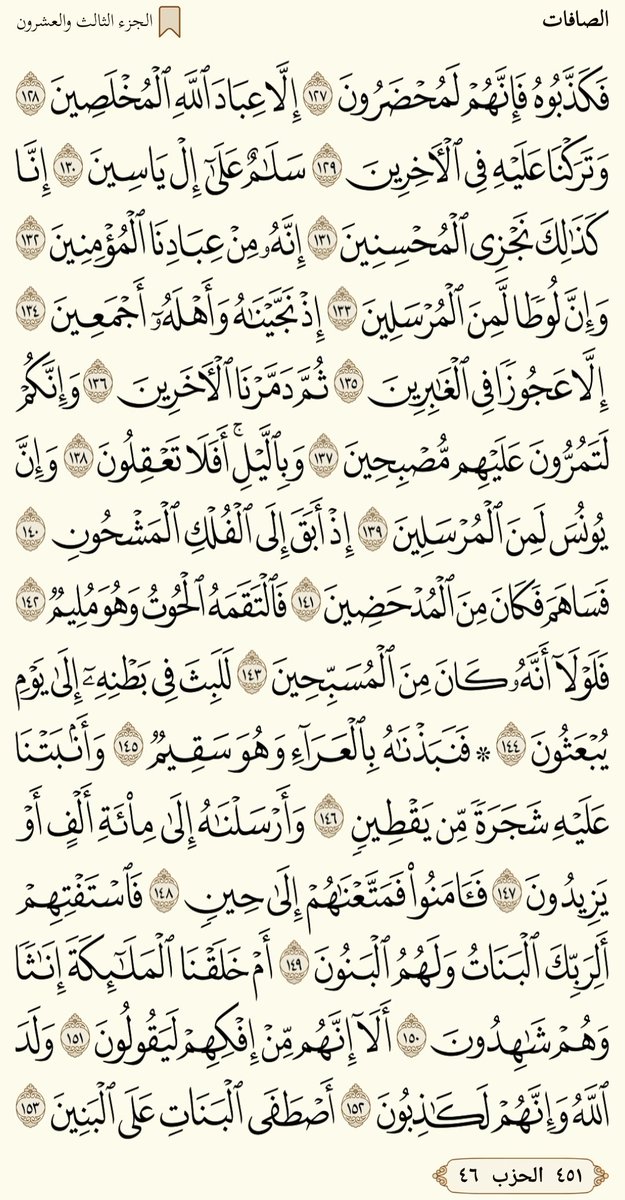 الصافات
الجزء الثالث والعشرون
فَكَذَّبُوهُ فَإِنَّهُمْ لَمُحْضَرُونَ ١٢٧ إِلَّا عِبَادَ ٱللَّهِ ٱلْمُخْلَصِينَ ١٢٨
وَتَرَكْنَا عَلَيْهِ فِى ٱلْـَٔاخِرِينَ ١٢٩ سَلَـٰمٌ عَلَىٰٓ إِلْ يَاسِينَ ١٣٠ إِنَّا
كَذَٰلِكَ نَجْزِى ٱلْمُحْسِنِينَ ١٣١ إِنَّهُۥ مِنْ عِبَادِنَا ٱلْمُؤْمِنِينَ ١٣٢
وَإِنَّ لُوطًا لَّمِنَ ٱلْمُرْسَلِينَ ١٣٣ إِذْ نَجَّيْنَـٰهُ وَأَهْلَهُۥٓ أَجْمَعِينَ ١٣٤
إِلَّا عَجُوزًا فِى ٱلْغَـٰبِرِينَ ١٣٥ ثُمَّ دَمَّرْنَا ٱلْـَٔاخَرِينَ ١٣٦ وَإِنَّكُمْ
لَتَمُرُّونَ عَلَيْهِم مُّصْبِحِينَ ١٣٧ وَبِٱلَّيْلِ ۚ أَفَلَا تَعْقِلُونَ ١٣٨ وَإِنَّ
يُونُسَ لَمِنَ ٱلْمُرْسَلِينَ ١٣٩ إِذْ أَبَقَ إِلَى ٱلْفُلْكِ ٱلْمَشْحُونِ ١٤٠
فَسَاهَمَ فَكَانَ مِنَ ٱلْمُدْحَضِينَ ١٤١ فَٱلْتَقَمَهُ ٱلْحُوتُ وَهُوَ مُلِيمٌ ١٤٢
فَلَوْلَآ أَنَّهُۥ كَانَ مِنَ ٱلْمُسَبِّحِينَ ١٤٣ لَلَبِثَ فِى بَطْنِهِۦٓ إِلَىٰ يَوْمِ
يُبْعَثُونَ ١٤٤ * فَنَبَذْنَـٰهُ بِٱلْعَرَآءِ وَهُوَ سَقِيمٌ ١٤٥ وَأَنۢبَتْنَا
عَلَيْهِ شَجَرَةً مِّن يَقْطِينٍ ١٤٦ وَأَرْسَلْنَـٰهُ إِلَىٰ مِا۟ئَةِ أَلْفٍ أَوْ
يَزِيدُونَ ١٤٧ فَـَٔامَنُوا۟ فَمَتَّعْنَـٰهُمْ إِلَىٰ حِينٍ ١٤٨ فَٱسْتَفْتِهِمْ
أَلِرَبِّكَ ٱلْبَنَاتُ وَلَهُمُ ٱلْبَنُونَ ١٤٩ أَمْ خَلَقْنَا ٱلْمَلَـٰٓئِكَةَ إِنَـٰثًا
وَهُمْ شَـٰهِدُونَ ١٥٠ أَلَآ إِنَّهُم مِّنْ إِفْكِهِمْ لَيَقُولُونَ ١٥١ وَلَدَ
ٱللَّهُ وَإِنَّهُمْ لَكَـٰذِبُونَ ١٥٢ أَصْطَفَى ٱلْبَنَاتِ عَلَى ٱلْبَنِينَ ١٥٣
٤٥١ الحزب ٤٦